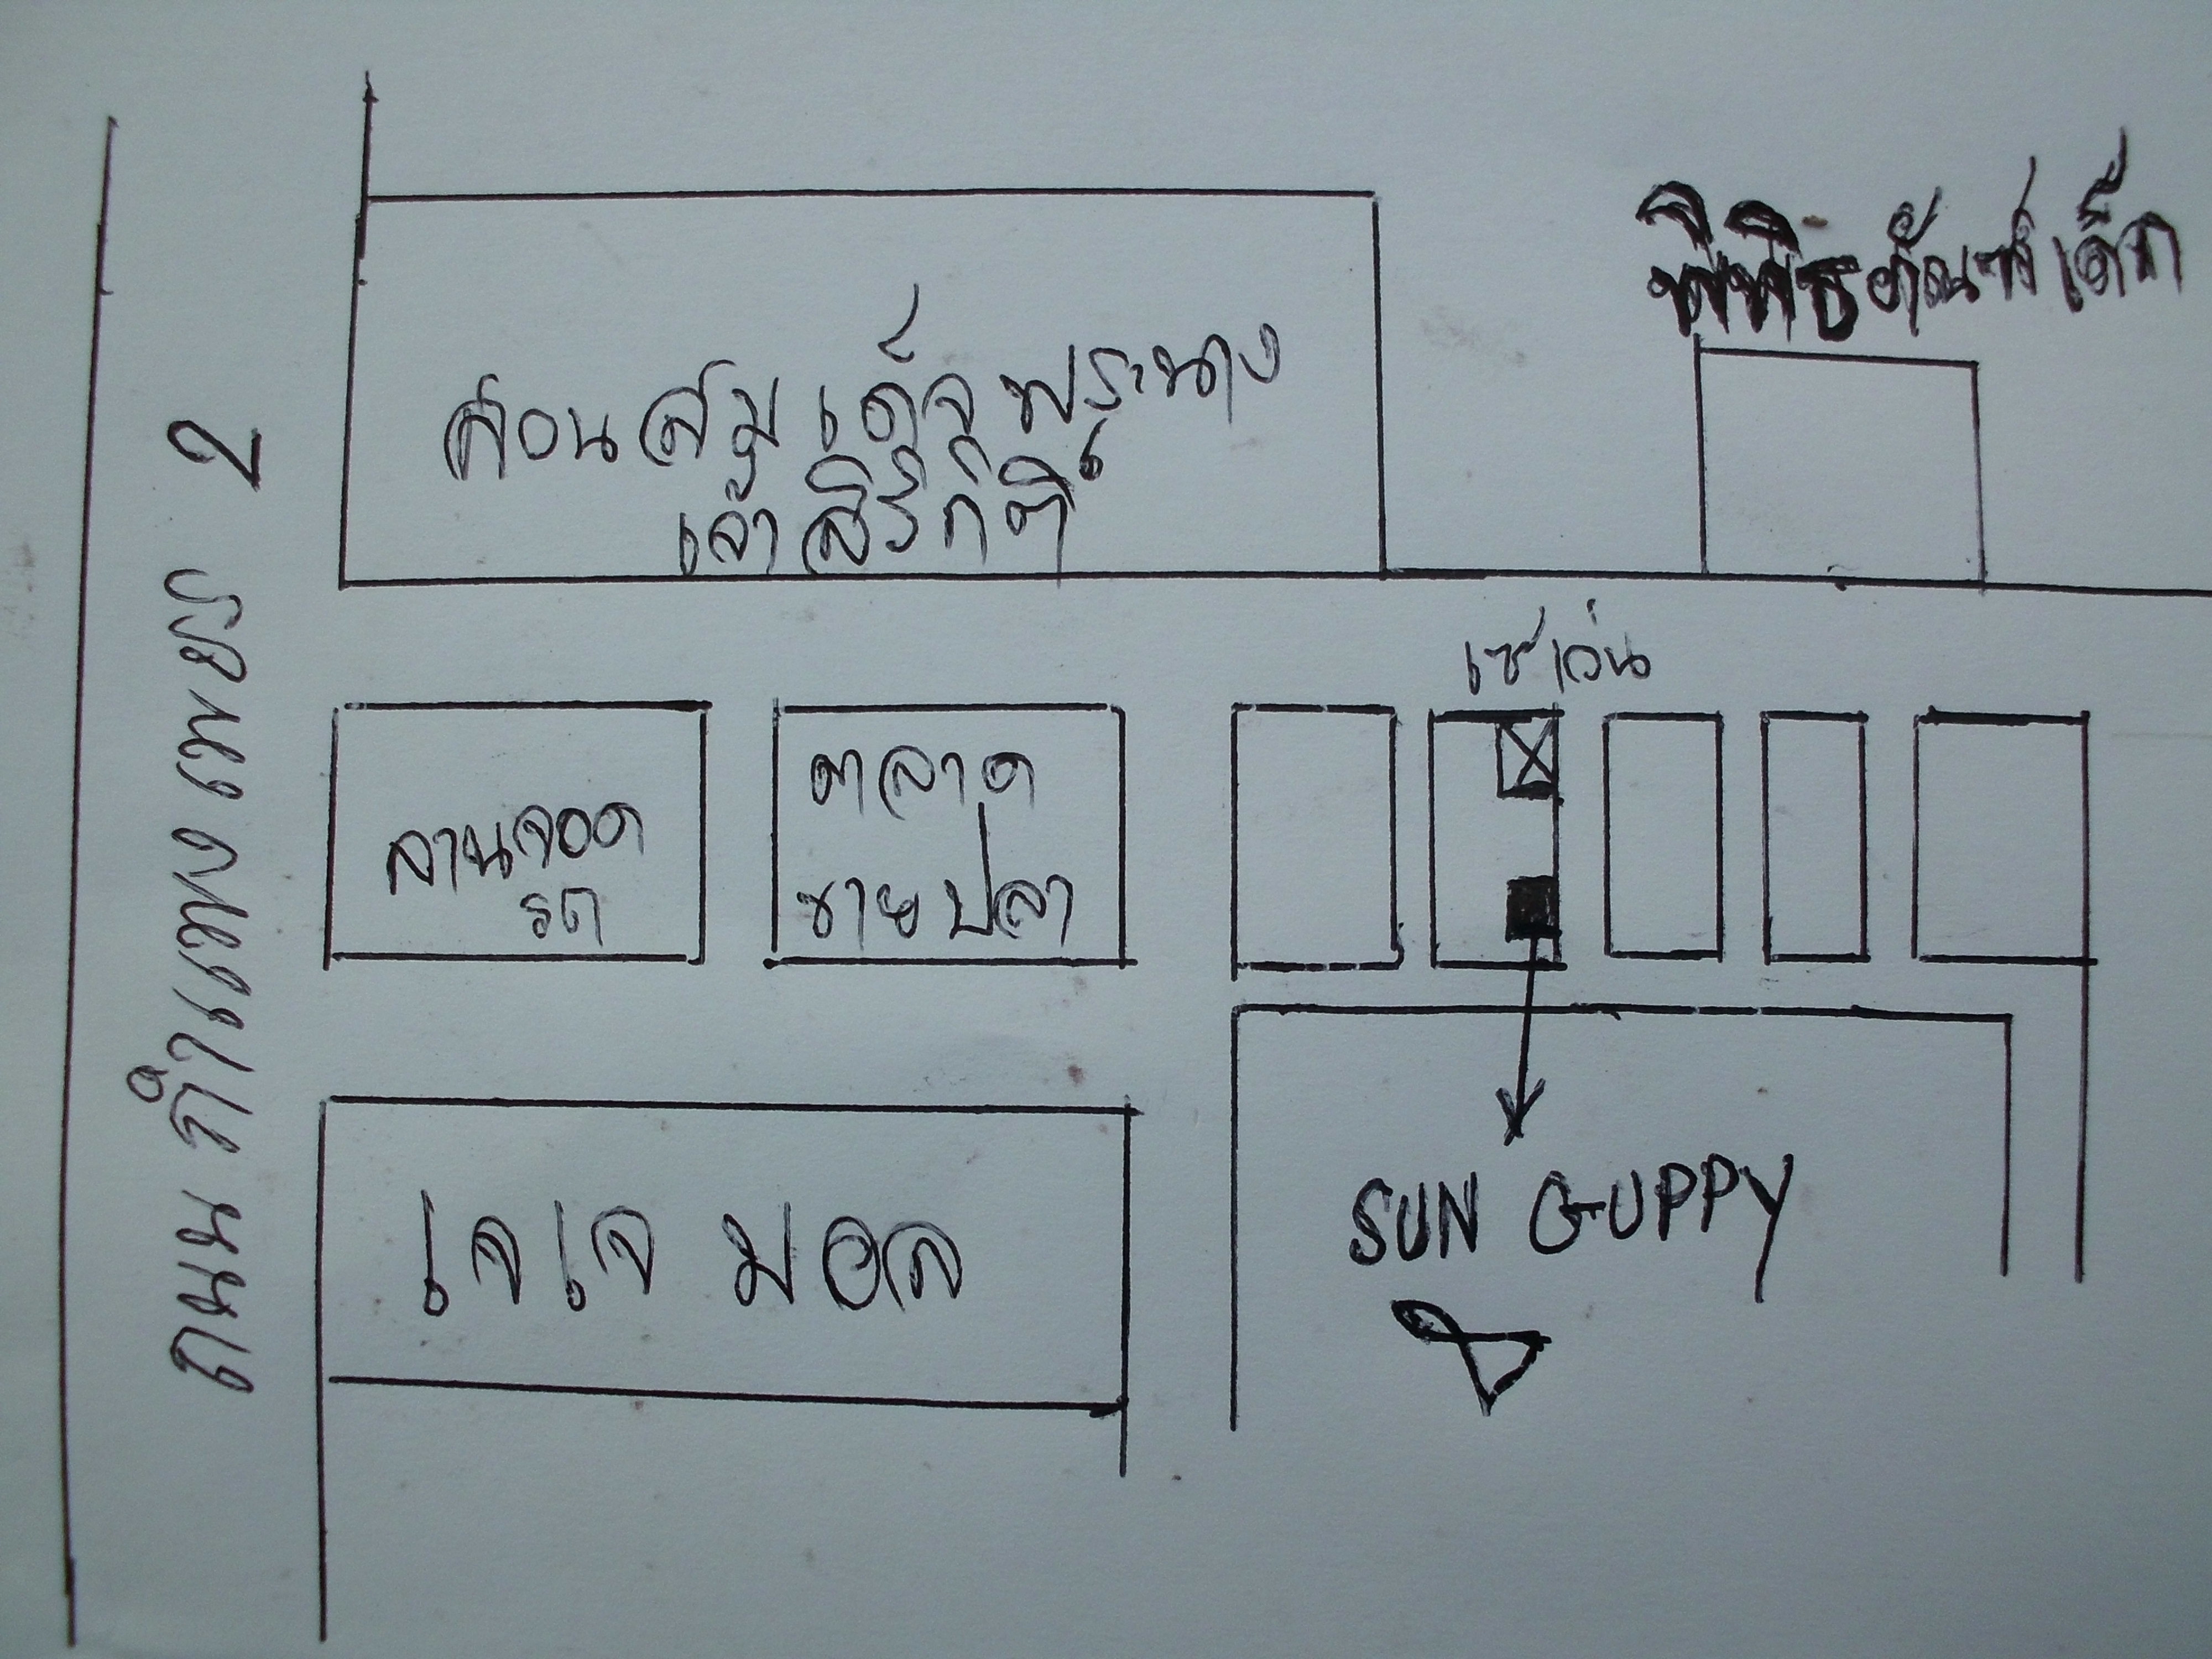 พิพิธภัณฑ์เด็ก
สวนสมเด็จพระนาง
เจ้าสิริกิติ์
ถนน กำแพงเพชร 2
เซเว่น
ลานจอด
รถ
ตลาด
ขายปลา
เจเจ มอล
SUN GUPPY